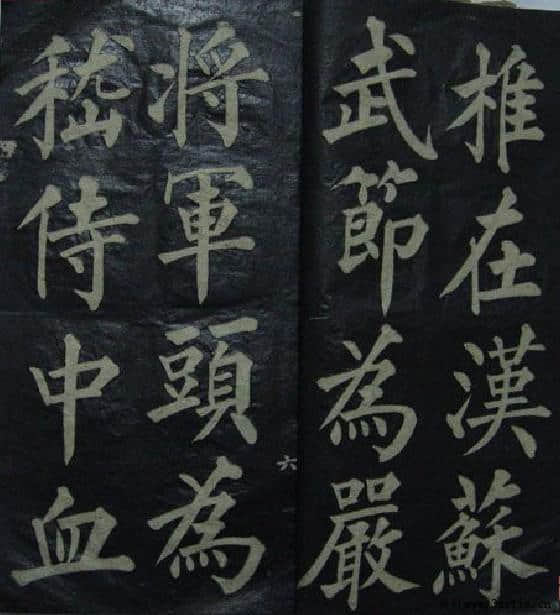 椎在漢蘇
武節為嚴
六
將軍頭為
嵇侍中血